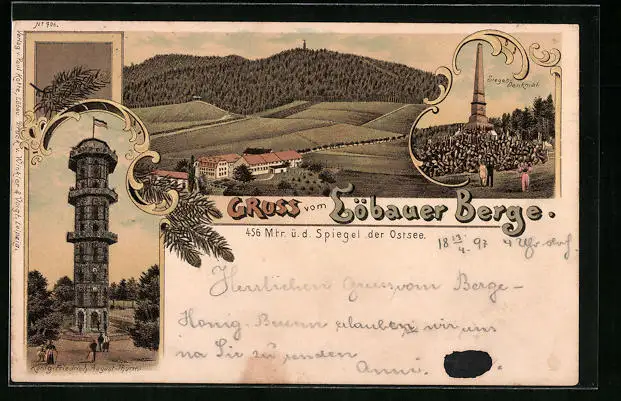 No 906.
Verlag v. Paul Kothe, Löbau. Druck v. Winkler & Voigt, Leipzig.
Sieges-
Denkmal.
GRUSS vom Löbauer Berge.
456 Mtr. ü. d. Spiegel der Ostsee.
18 19/4. 97 4 Uhr
Herzlichen Gruss vom Berge-
Honig-Brunn erlauben wir uns
na Sie zu senden
Anni.
König-Friedrich August-Thurm.